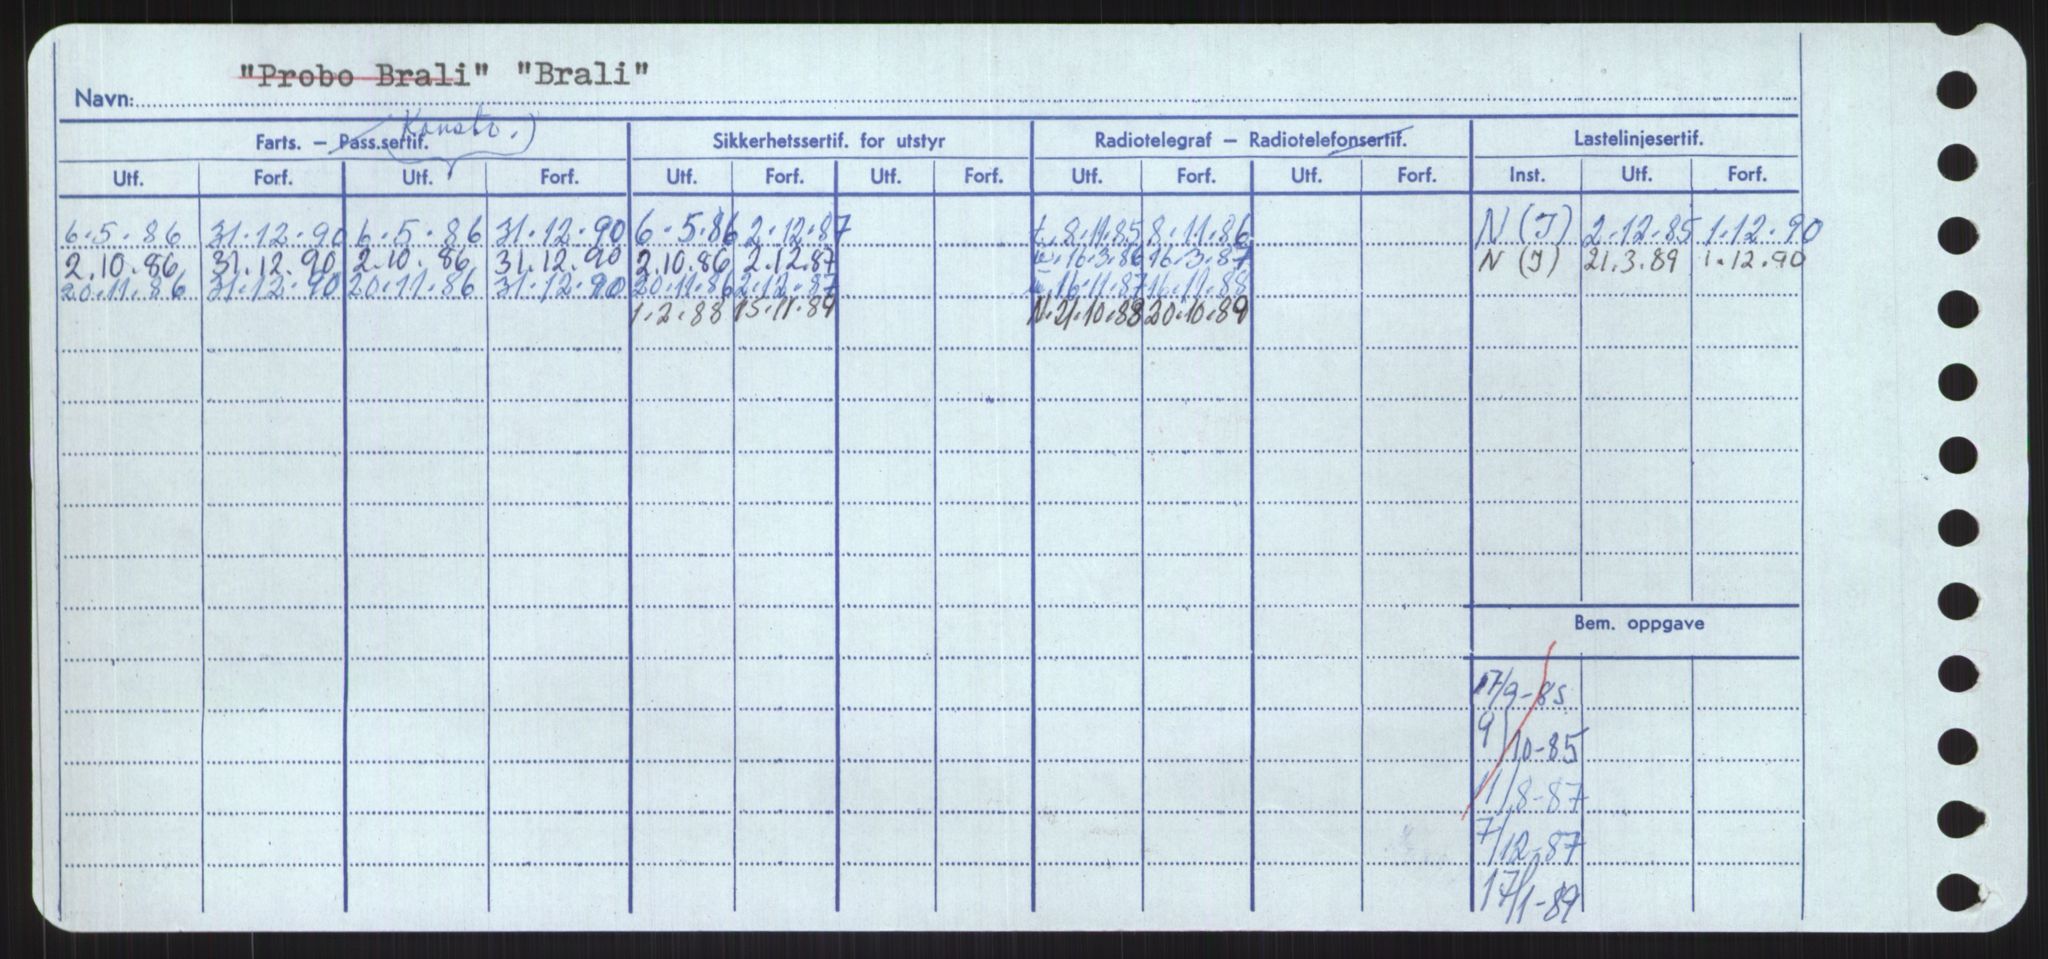 "Probo Brali" "Brali"
Navn:
Konstr.)
Farts. — Pass.sertif. Sikkerhetssertif. for utstyr Radiotelegraf — Radiotelefonsertif. Lastelinjesertif.
Utf. Forf. Utf. Forf. Utf. Forf. Utf. Forf. Utf. Forf. Utf. Forf. Inst. Utf. Forf.
6.5.86 31.12.90 6.5.86 31.12.90 6.5.86 2.12.87 8.11.85 8.11.86 N (I) 2.12.85 1.12.90
2.10.86 31.12.90 2.10.86 31.12.90 2.10.86 2.12.87 16.3.86 16.3.87 N (I) 21.3.89 1.12.90
20.11.86 31.12.90 20.11.86 31.12.90 20.11.86 2.12.87 16.11.87 16.11.88
1.2.88 15.11.89 N.21.10.88 20.10.89
Bem. oppgave
17/9-85
9/10-85
11/8-87
7/12-87
17/1-89